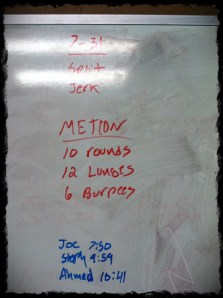 7-31
Split
Jerk
METCON
10 rounds
12 Lunges
6 Burpees
Joe 7:50
Steph 9:59
Ahmed 10:41